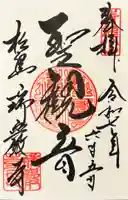 奉拝
令和七年六月五日
聖観音
松島 瑞巌寺